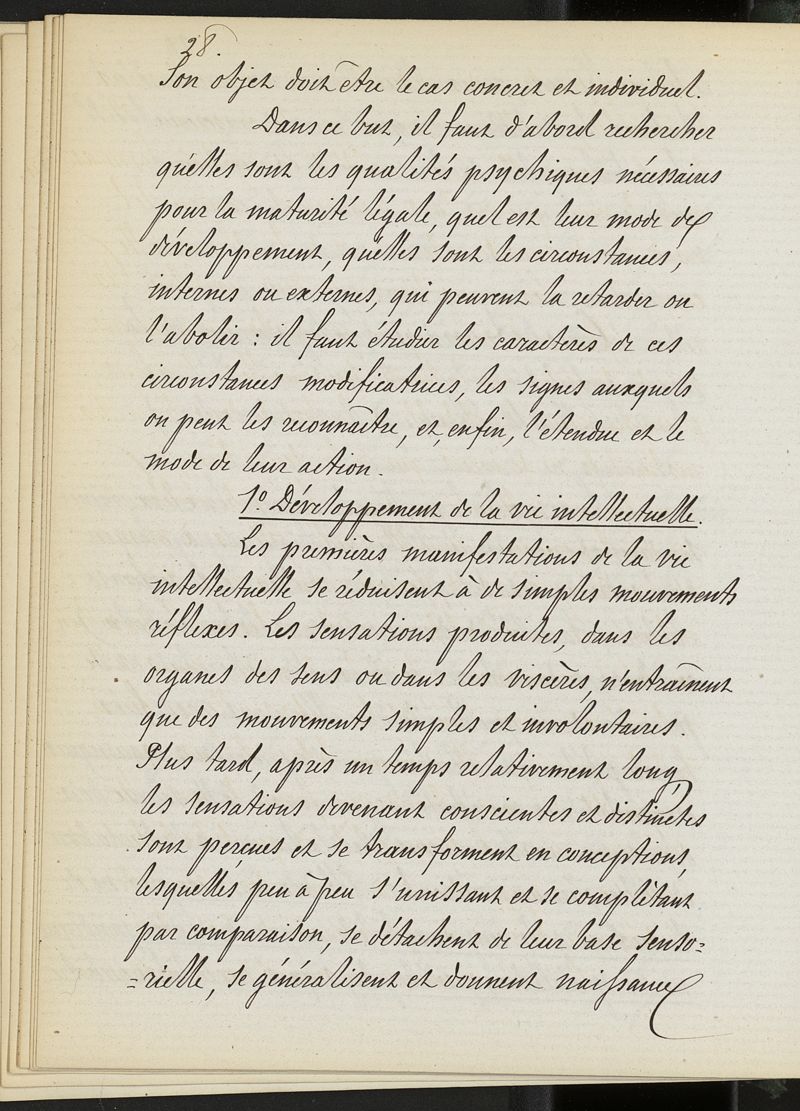 28.
Son objet doit être le cas concret et individuel.
Dans ce but, il faut d'abord rechercher
quelles sont les qualités psychiques nécessaires
pour la maturité légale, quel est leur mode de
développement, quelles sont les circonstances,
internes ou externes, qui peuvent la retarder ou
l'abolir : il faut étudier les caractères de ces
circonstances modificatrices, les signes auxquels
on peut les reconnaître, et, enfin, l'étendue et le
mode de leur action.
1.º Développement de la vie intellectuelle.
Les premières manifestations de la vie
intellectuelle se réduisent à de simples mouvements
réflexes. Les sensations produites, dans les
organes des sens ou dans les viscères, n'entraînent
que des mouvements simples et involontaires.
Plus tard, après un temps relativement long,
les sensations devenant conscientes et distinctes
sont perçues et se transforment en conceptions,
lesquelles peu à peu s'unissant et se complètant
par comparaison, se détachent de leur base senso=
=rielle, se généralisent et donnent naissance